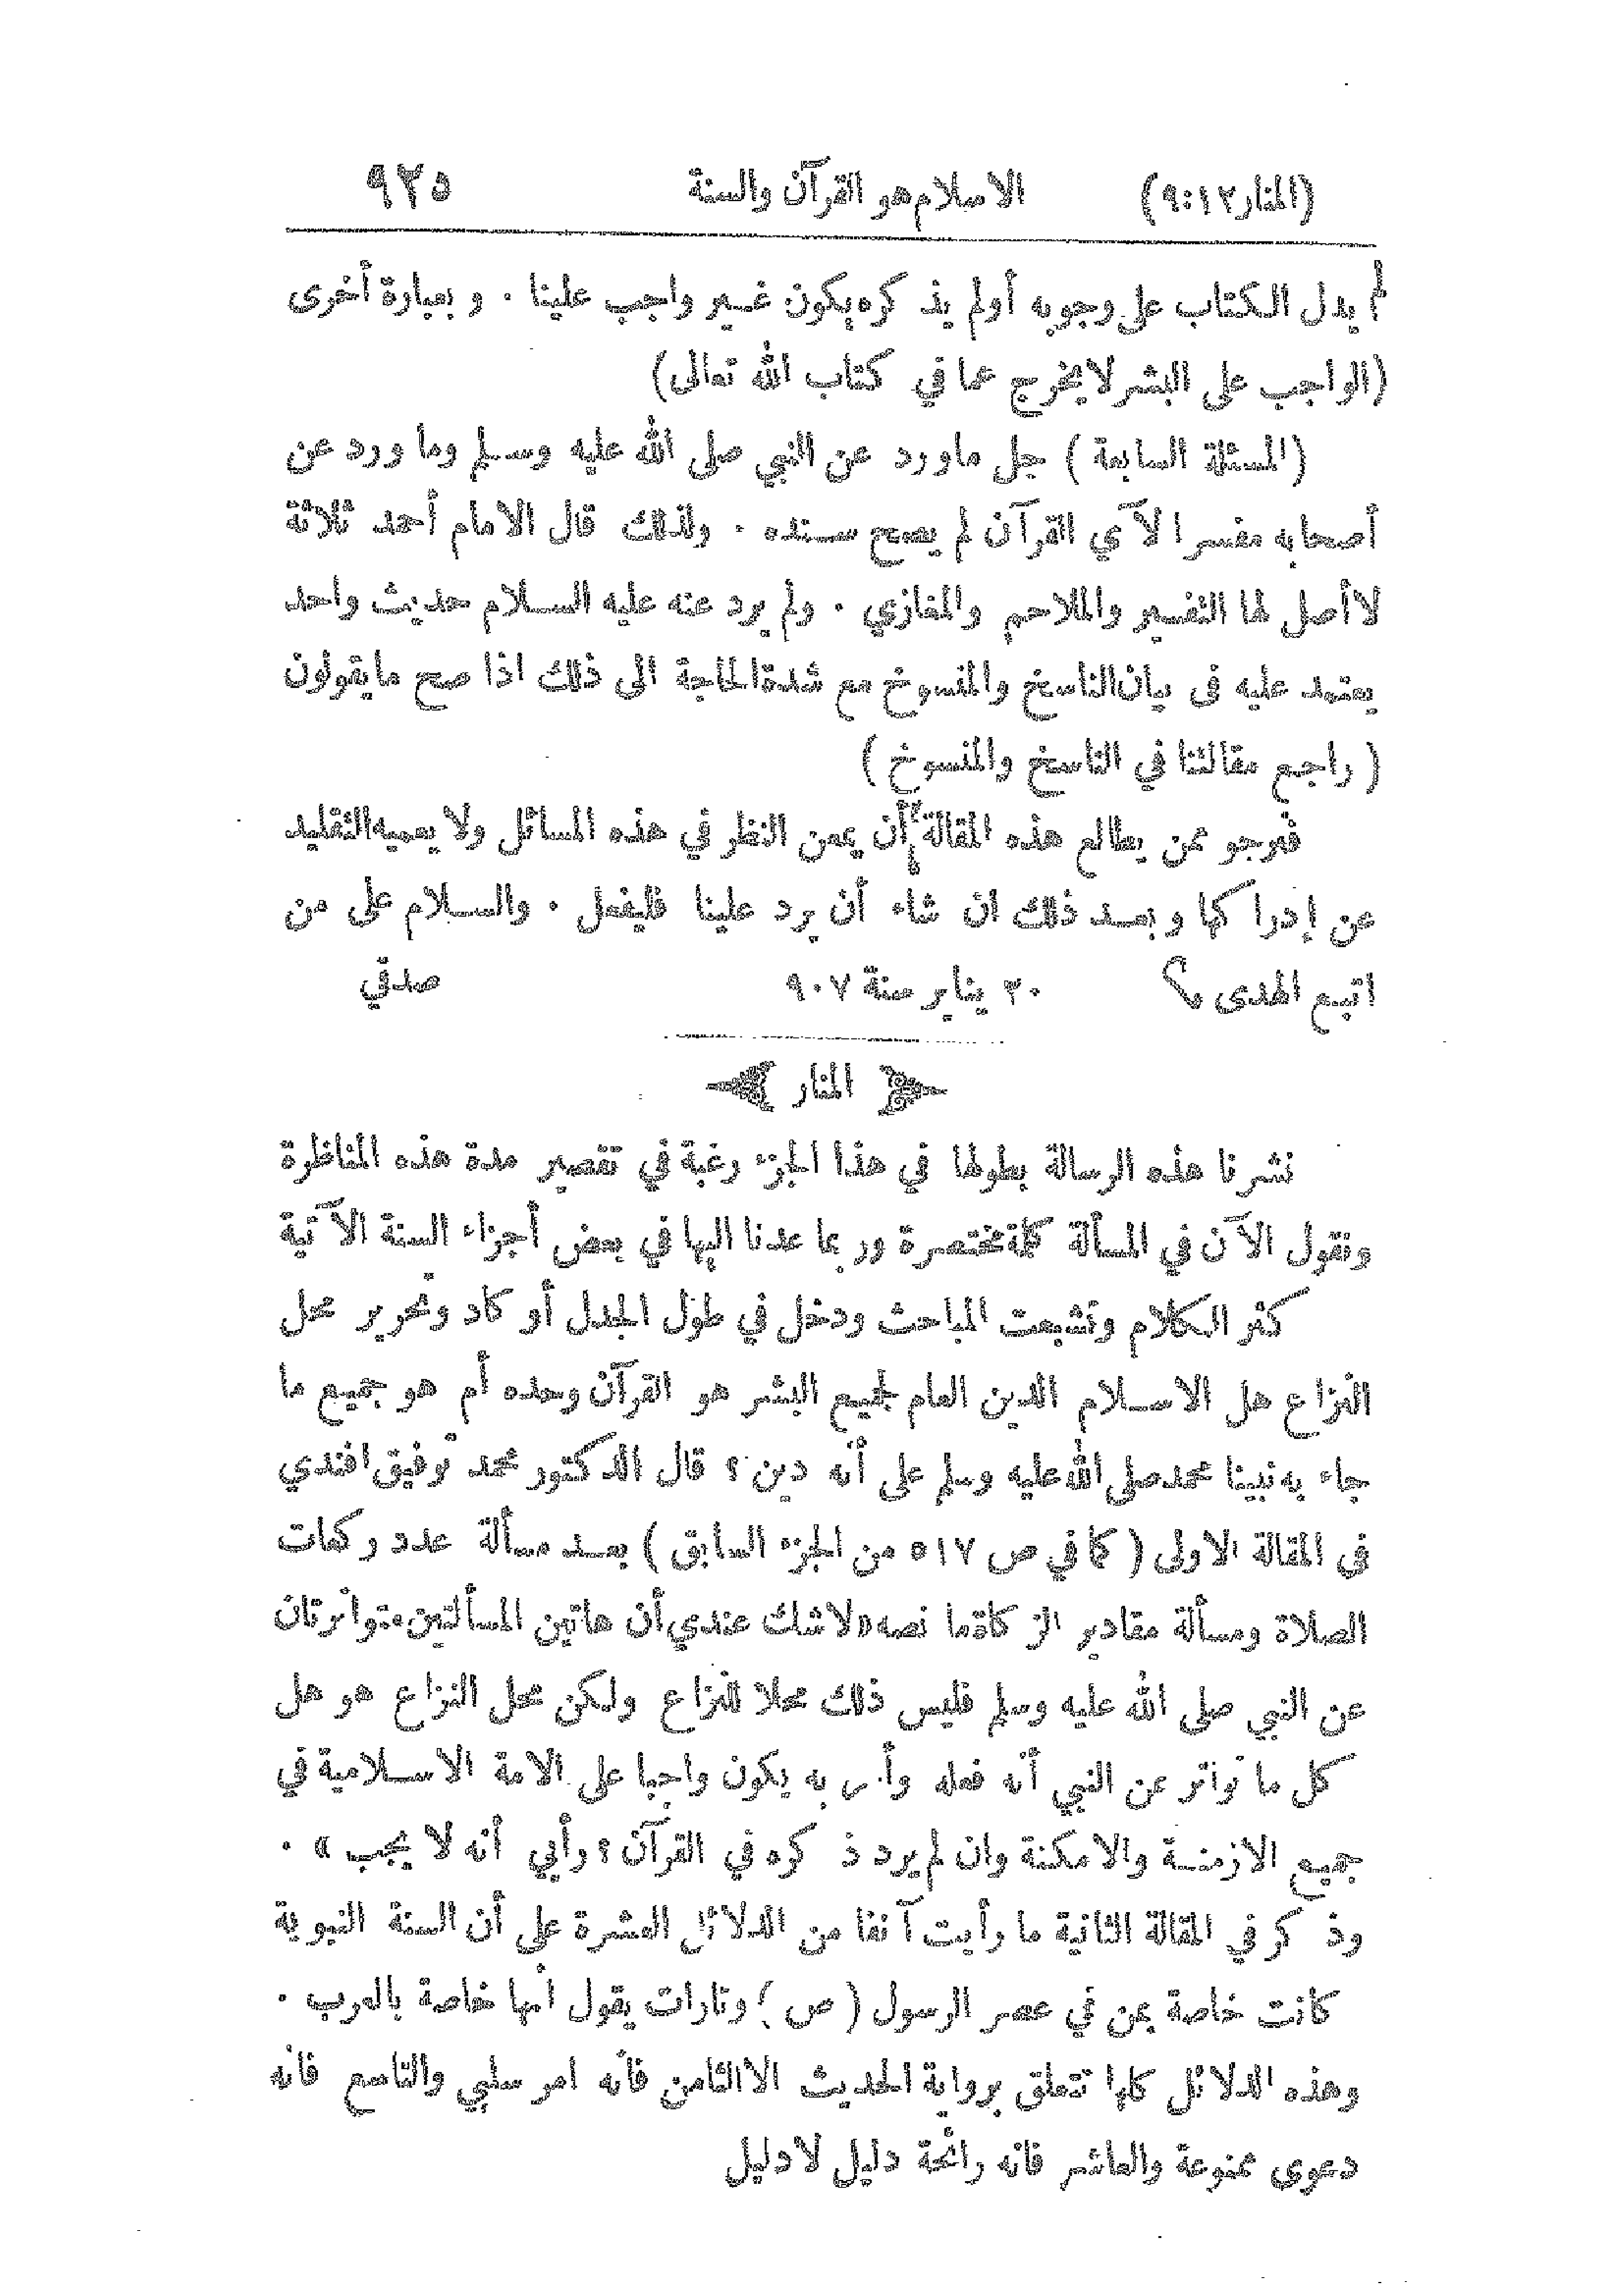 (المنار ١٢:٩) الاسلام هو القرآن والسنة ٩٢٥
لم يدل الكتاب على وجوبه أو لم يذكره يكون غير واجب علينا . وبعبارة أخرى
(الواجب على البشر لا يخرج عما في كتاب الله تعالى)
(المسئلة السابعة) جل ما ورد عن النبي صلى الله عليه وسلم وما ورد عن
أصحابه مفسرا لآي القرآن لم يصح سنده . ولذلك قال الامام أحمد ثلاثة
لا أصل لها التفسير والملاحم والمغازي . ولم يرد عنه عليه السلام حديث واحد
يعتمد عليه في بيان الناسخ والمنسوخ مع شدة الحاجة الى ذلك اذا صح ما يقولون
(راجع مقالتنا في الناسخ والمنسوخ)
فنرجو ممن يطالع هذه المقالة أن يمعن النظر في هذه المسائل ولا يعميه التقليد
عن إدراكها وبعد ذلك ان شاء أن يرد علينا فليفعل . والسلام على من
اتبع الهدى ٢٠ يناير سنة ٩٠٧ صدقي
المنار
نشرنا هذه الرسالة بطولها في هذا الجزء رغبة في تقصير مدة هذه المناظرة
ونقول الآن في المسألة كلمة مختصرة وربما عدنا اليها في بعض أجزاء السنة الآتية
كثر الكلام وتشعبت المباحث ودخل في طول الجدل أو كاد وتحرير محل
النزاع هل الاسلام الدين العام لجميع البشر هو القرآن وحده أم هو جميع ما
جاء به نبينا محمد صلى الله عليه وسلم على أنه دين ؟ قال الدكتور محمد توفيق افندي
في المقالة الاولى (كما في ص ٥١٧ من الجزء السابق) بعد مسألة عدد ركعات
الصلاة ومسألة مقادير الزكاة ما نصه «لا شك عندي أن هاتين المسألتين متواترتان
عن النبي صلى الله عليه وسلم فليس ذلك محلا للنزاع ولكن محل النزاع هو هل
كل ما تواتر عن النبي أنه فعله وأمر به يكون واجبا على الامة الاسلامية في
جميع الازمنة والامكنة وان لم يرد ذكره في القرآن ؟ رأيي أنه لا يجب» .
وذكر في المقالة الثانية ما رأيت آنفا من الدلائل العشرة على أن السنة النبوية
كانت خاصة بمن في عصر الرسول (ص) وتارات يقول انها خاصة بالعرب .
وهذه الدلائل كلها تتعلق برواية الحديث الا الثامن فانه امر سلبي والتاسع فانه
دعوى ممنوعة والعاشر فانه رائحة دليل لا دليل